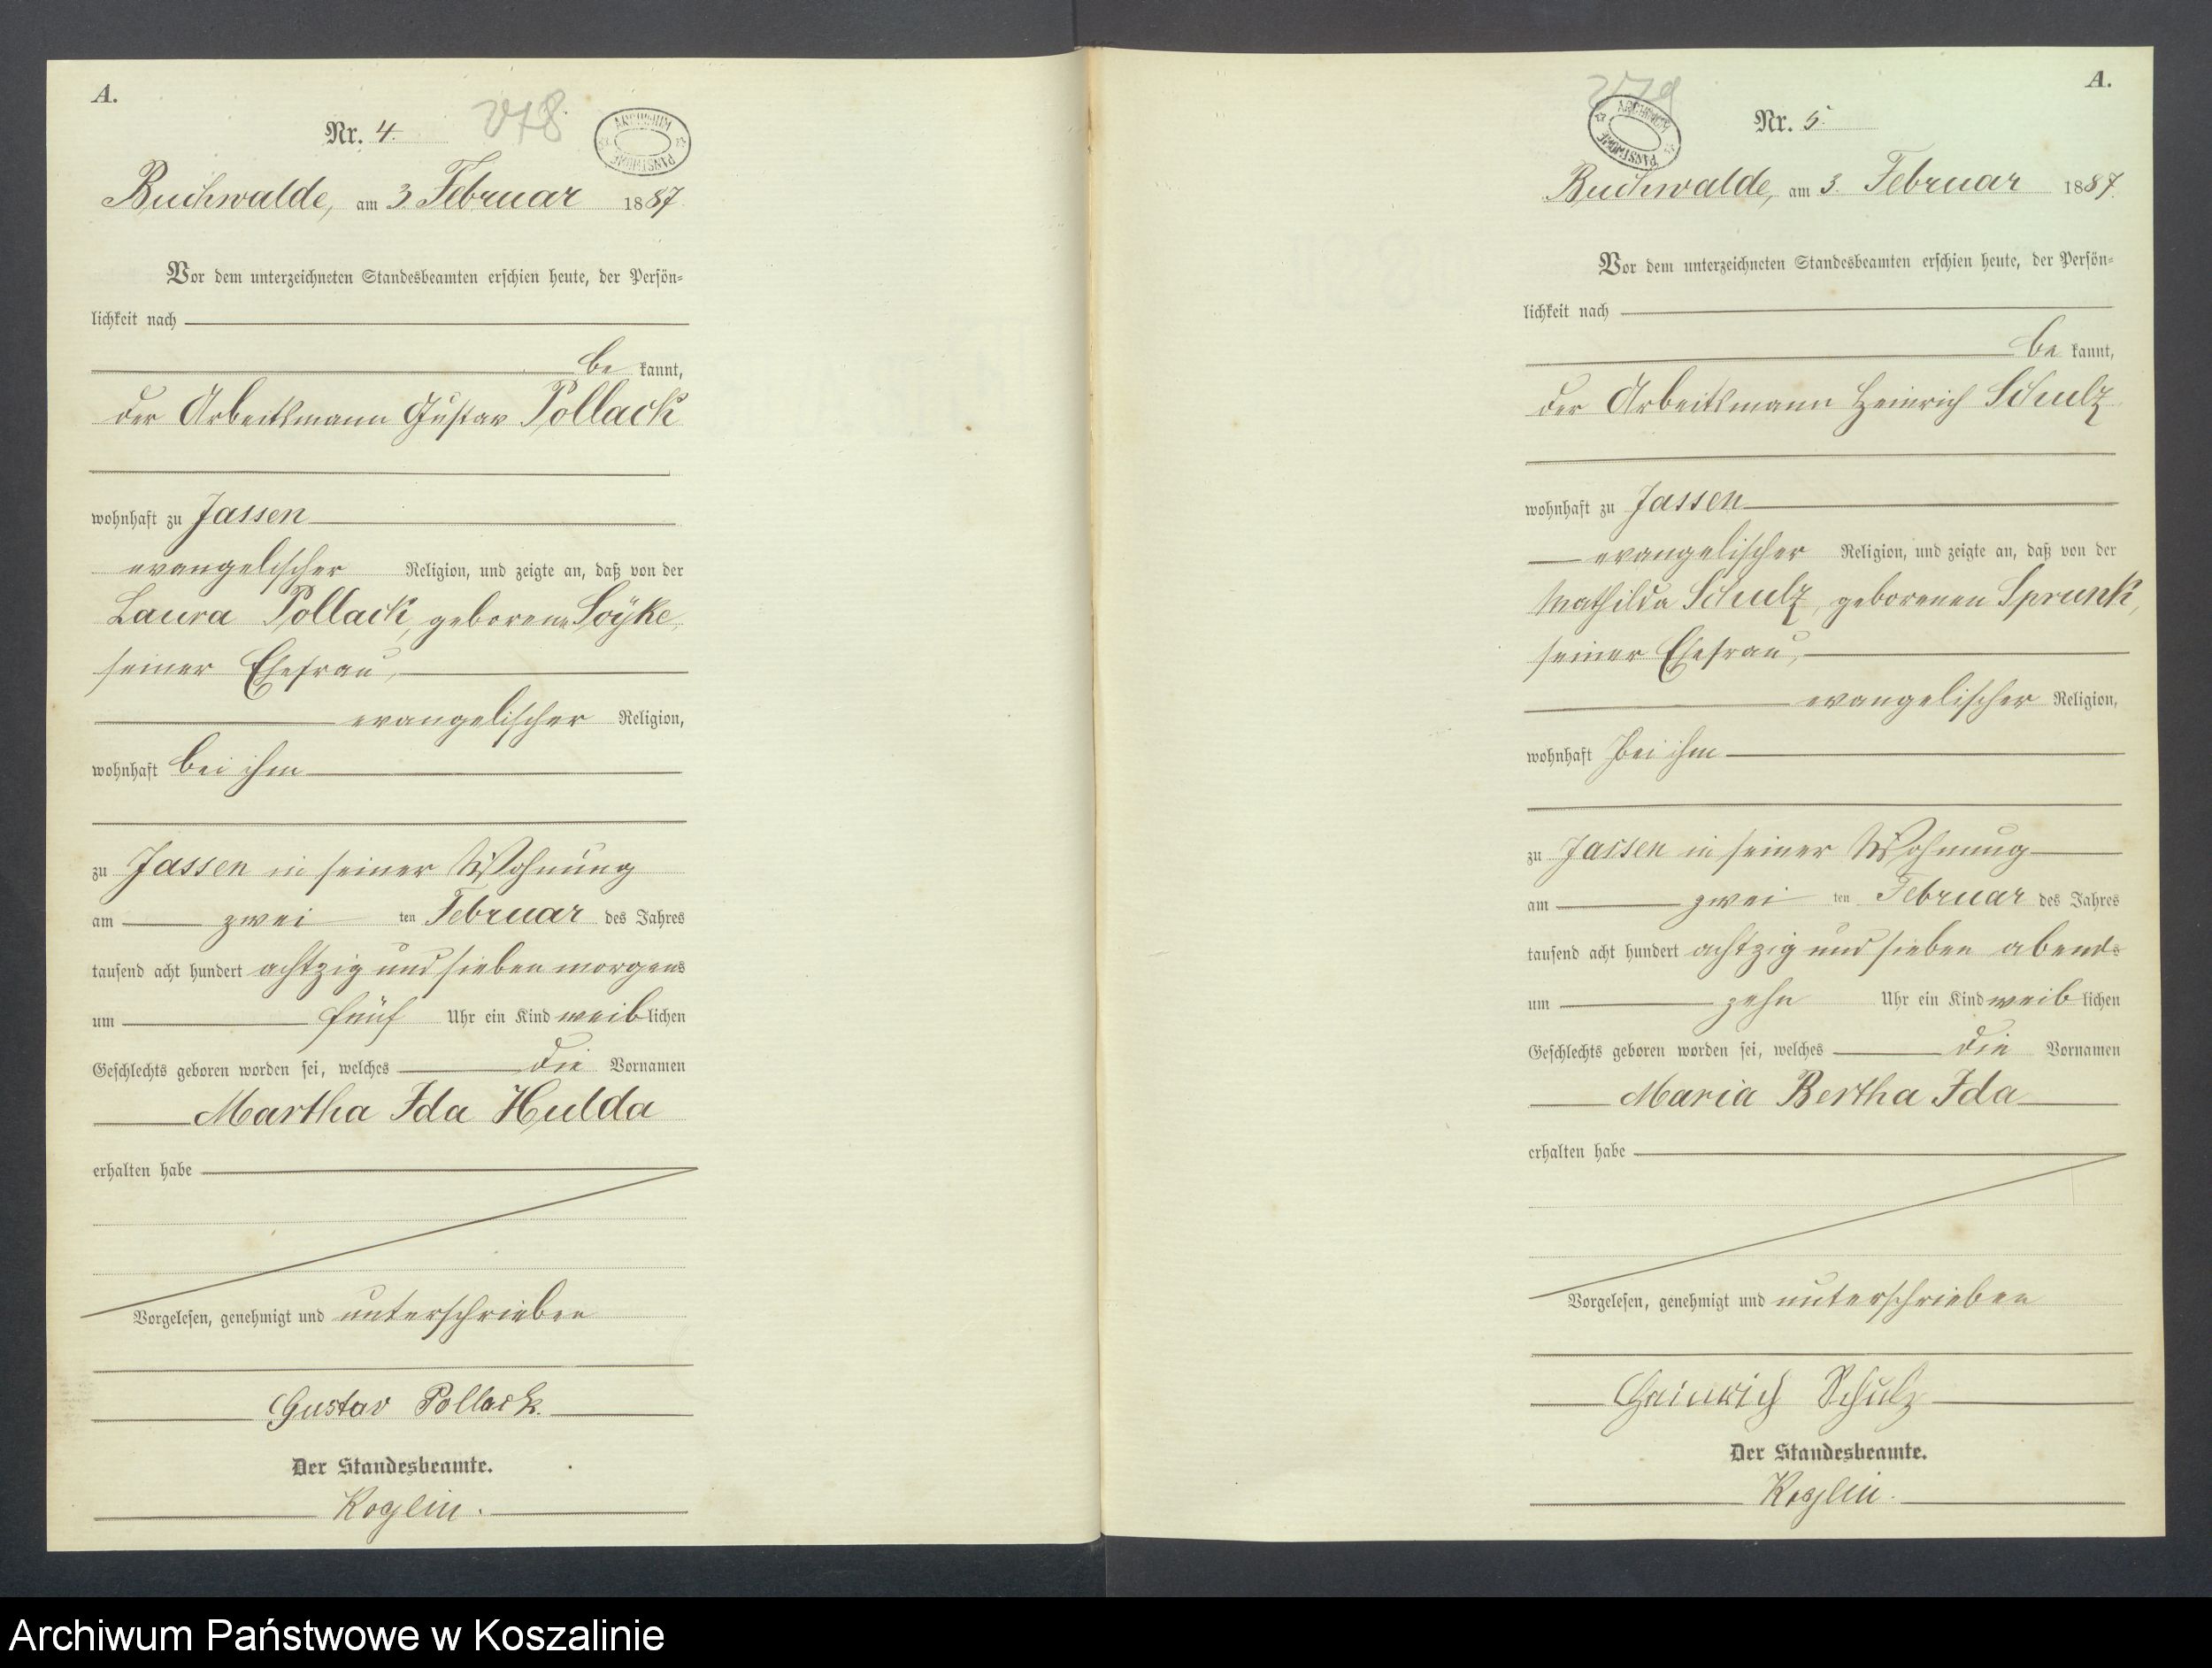 A.
Nr. 4.
278.
ARCHIWUM PAŃSTWOWE
Buchwalde, am 3. Februar 1887.
Vor dem unterzeichneten Standesbeamten erschien heute, der Persön=
lichkeit nach
be kannt,
der Arbeitsmann Gustav Pollack
wohnhaft zu Jassen
evangelischer Religion, und zeigte an, daß von der
Laura Pollack, geborene Söyke,
seiner Ehefrau,
evangelischer Religion,
wohnhaft bei ihm
zu Jassen in seiner Wohnung
am zwei ten Februar des Jahres
tausend acht hundert achtzig und sieben morgens
um fünf Uhr ein Kind weiblichen
Geschlechts geboren worden sei, welches die Vornamen
Martha Ida Hulda
erhalten habe
Vorgelesen, genehmigt und unterschrieben
Gustav Pollack.
Der Standesbeamte.
Koglin.
A.
279
Nr. 5.
ARCHIWUM PAŃSTWOWE
Buchwalde, am 3. Februar 1887.
Vor dem unterzeichneten Standesbeamten erschien heute, der Persön=
lichkeit nach
be kannt,
der Arbeitsmann Heinrich Schulz
wohnhaft zu Jassen
evangelischer Religion, und zeigte an, daß von der
Mathilde Schulz, geborenen Sprunk,
seiner Ehefrau,
evangelischer Religion,
wohnhaft bei ihm
zu Jassen in seiner Wohnung
am zwei ten Februar des Jahres
tausend acht hundert achtzig und sieben abends
um zehn Uhr ein Kind weiblichen
Geschlechts geboren worden sei, welches die Vornamen
Maria Bertha Ida
erhalten habe
Vorgelesen, genehmigt und unterschrieben
Heinrich Schulz
Der Standesbeamte.
Koglin.
Archiwum Państwowe w Koszalinie